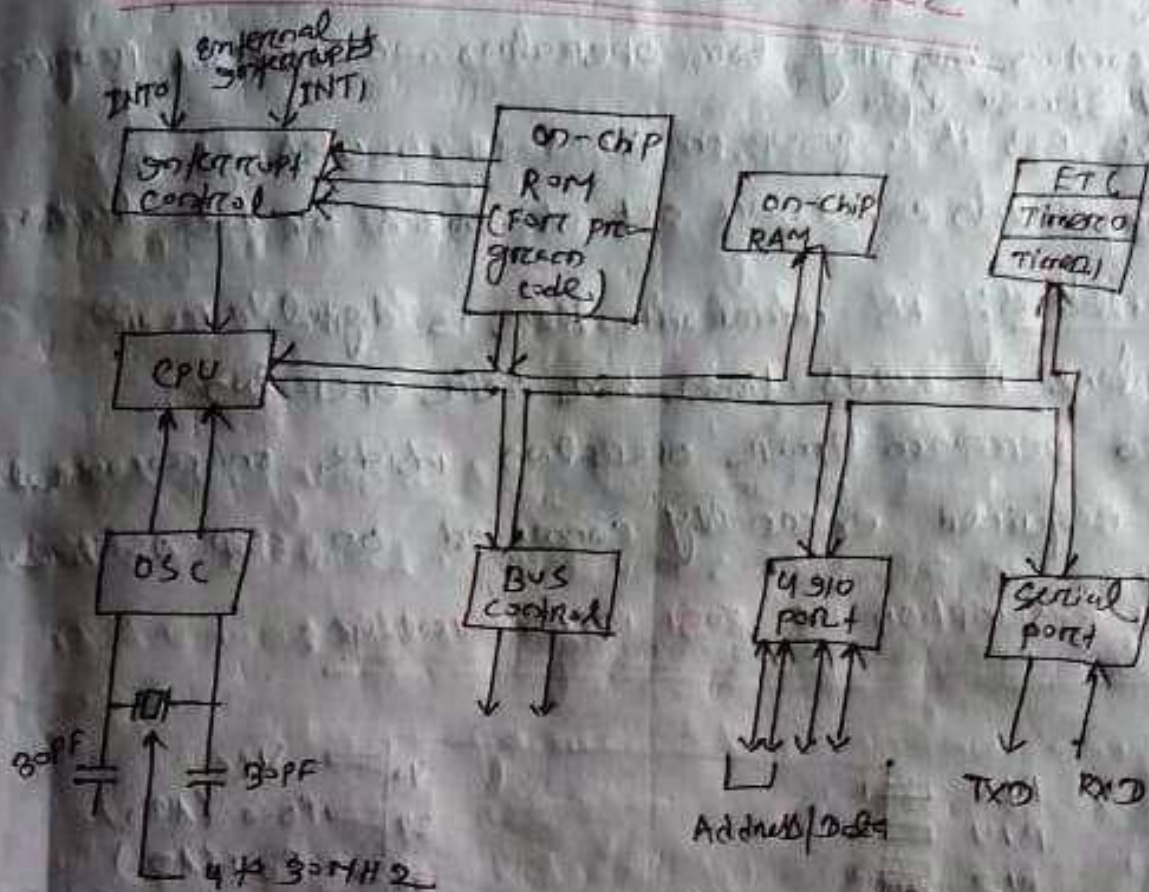 External
Interrupts
INT0
INT1
Interrupt
control
on-chip
ROM
(For pro-
gram
code)
on-chip
RAM
ETC
Timer0
Timer1
CPU
OSC
BUS
control
4 I/O
port
Serial
port
30PF
30PF
4 to 30MHz
Address/Data
TXD
RXD